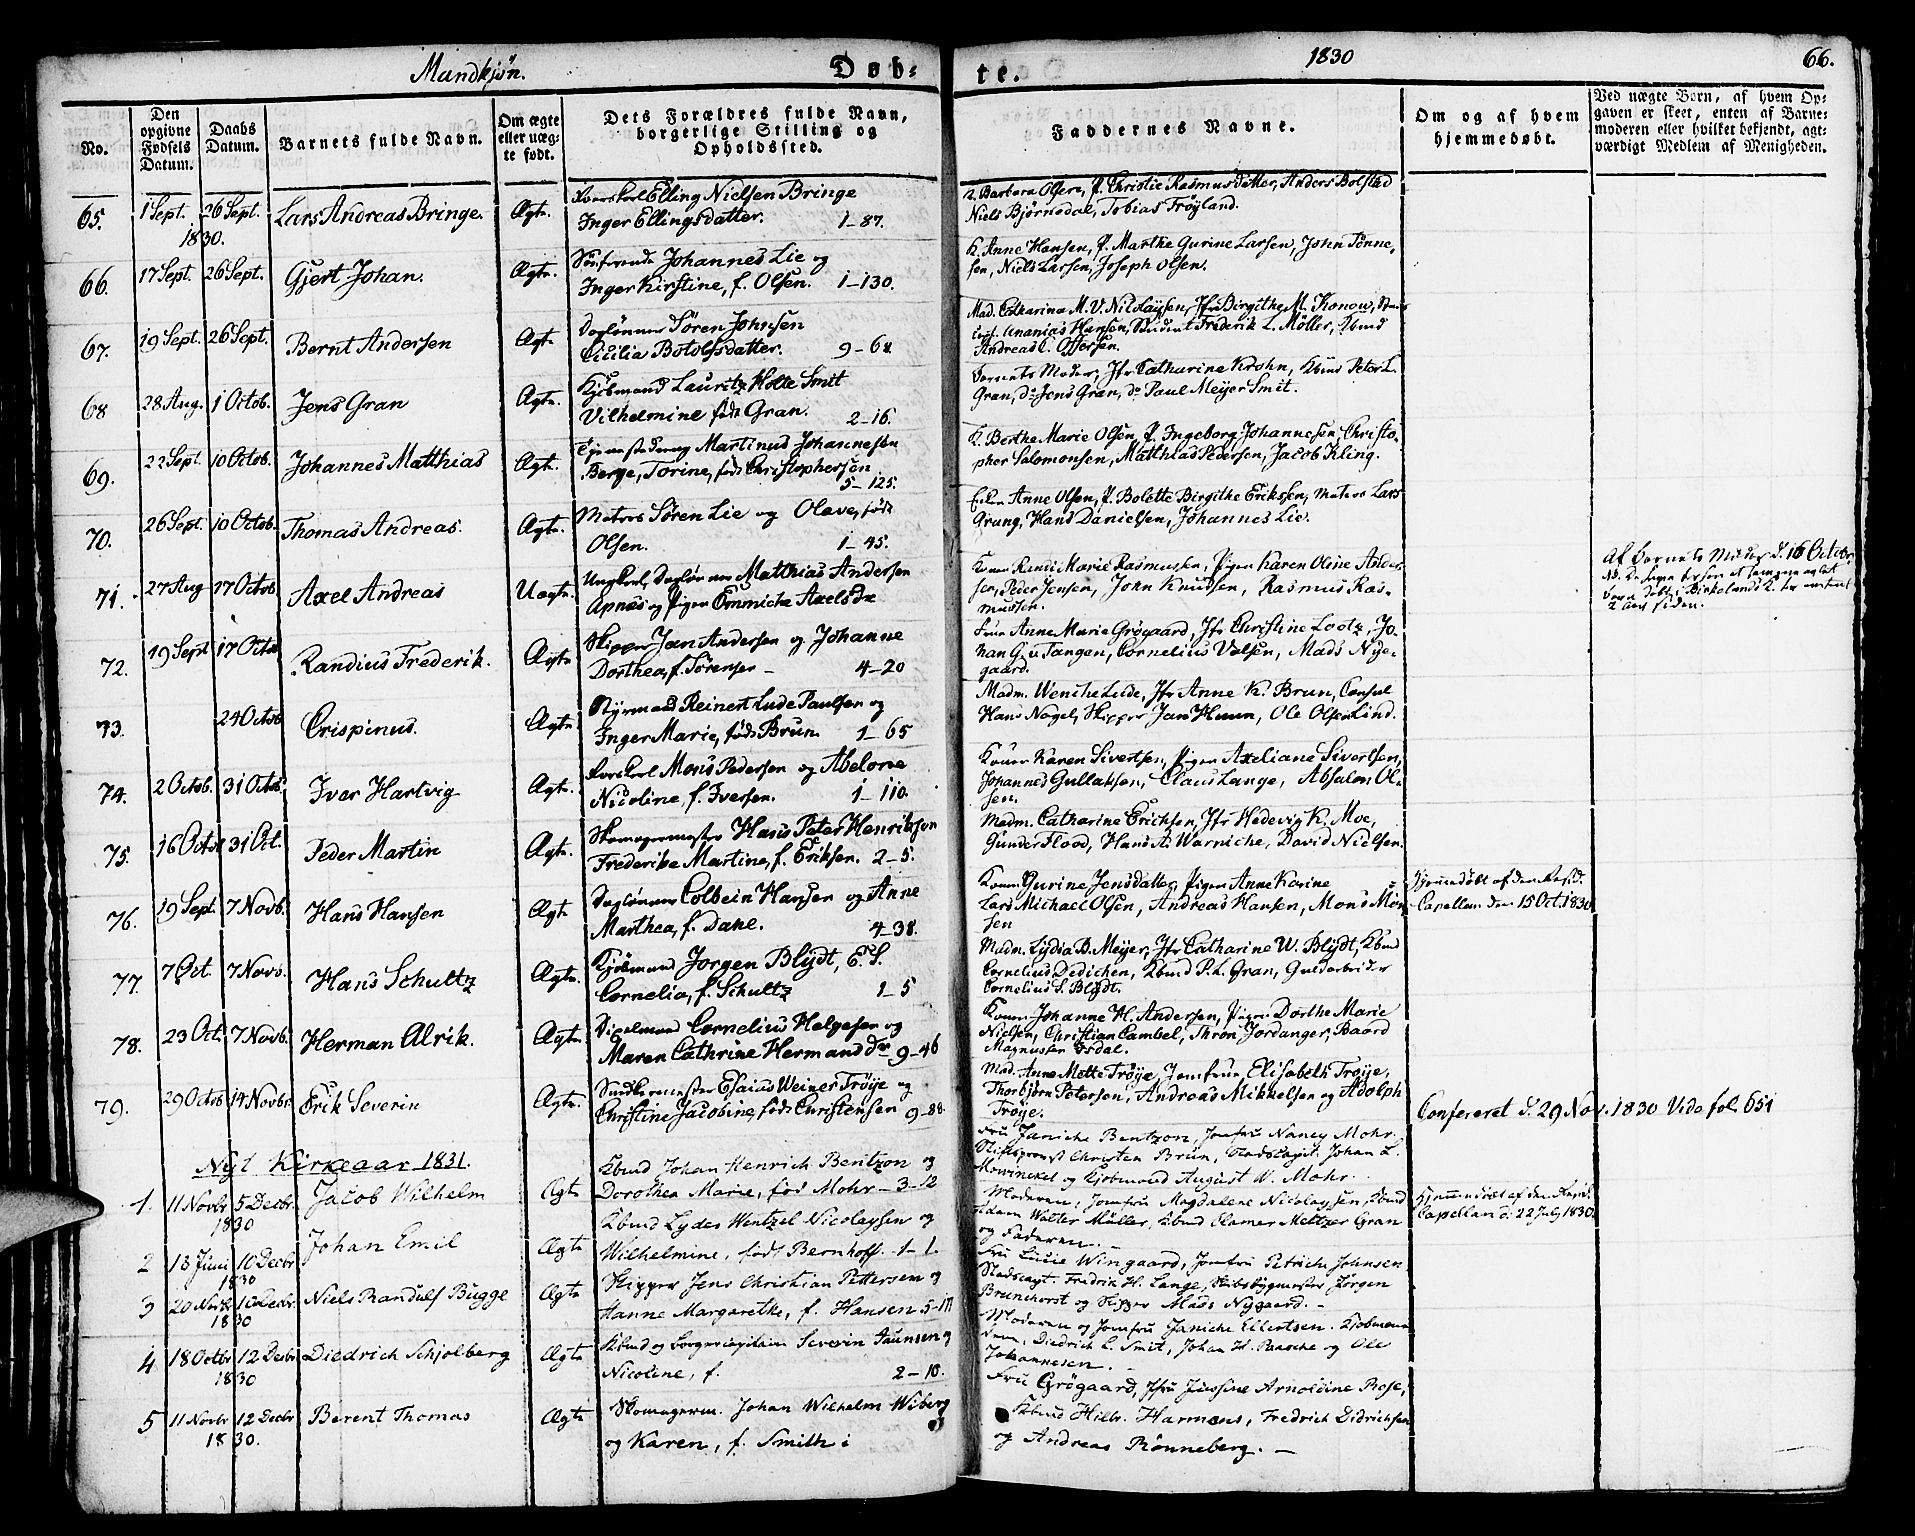 Mandkjøn. Døb- te. 1830 66.
No. | Den opgivne Fødsels Datum. | Daabs Datum. | Barnets fulde Navn. | Om ægte eller uægte født. | Dets Forældres fulde Navn, borgerlige Stilling og Opholdssted. | Faddernes Navne. | Om og af hvem hjemmedøbt. | Ved uægte Børn, af hvem Opgaven er skeet, enten af Barnemoderen eller hvilket bekjendt, agtværdigt Medlem af Menigheden.
65. 1 Sept. 1830. 26 Sept. Lars Andreas Bringe. Ægte. Elling Nielsen Bringe
Inger Ellingsdatter. 1-87.
K. Barbara Olsen, P. Christie Rasmusdatter, Anders Bolstad
Niels Bjørnedal, Tobias Frøyland.
66. 17 Sept. 26 Sept. Gjert Johan. Ægte. Johannes Lie og
Inger Kirstine, f. Olsen. 1-130.
K. Anne Hansen, P. Marthe Gurine Larsen, John Tønne-
sen, Niels Larsen, Joseph Olsen.
67. 19 Sept. 26 Sept. Bernt Andersen Ægte. Daglønner Søren Johnsen
Cicilia Botolfsdatter. 9-68
Mad. Catharina M. V. Nicolaysen, Jfr Birgithe M. Konow,
Ananias Hansen, Student Frederik L. Møller, Kbmd
Andreas C. Offersen.
68 28 Aug. 1 Octob. Jens Gran Ægte. Kjøbmand Lauritz Holte Smit
Vilhelmine født Gran. 2-16.
Barnets Moder, Jfr Catharine Krohn, Kbmd Peter L.
Gran, do Jens Gran, do Paul Meyer Smit.
69. 22 Sept. 10 Octob. Johannes Matthias Ægt. Martinus Johannesen
Berge, Torine, født Christophersen 5-125.
K. Berthe Marie Olsen, P. Ingeborg Johannesen, Christo-
pher Salomonsen, Matthias Pedersen, Jacob Kling.
70. 26 Sept. 10 Octob. Thomas Andreas. Ægte. Matros Søren Lie og Olave, født
Olsen. 1-45.
Anne Olsen, P. Bolette Birgithe Eriksen, Matros Lars
Grung, Hans Danielsen, Johannes Lie.
71. 27 Aug 17 Octob. Axel Andreas Uægte. Ungkarl Daglønner Matthias Andersen
Apnæs og Pigen Emmicke Axelsdr
Konen Randi Marie Rasmussen, Pigen Karen Oline Ander-
sen, Peder Jensen, John Knudsen, Rasmus Ras-
mussen.
Af Barnets Moder d. 16 Octobr,
2 Aar siden.
72. 19 Sept 17 Octob Randius Frederik. Ægte Skipper Jan Andersen og Johanne
Dorthea, f. Sørensen - 4-20
Anne Marie Grøgaard, Jfr Christine Lootz, Jo-
han G. v. Tangen, Cornelius Valsen, Mads Nye-
gaard.
73. 24 Octob Crispinus. Ægte. Styrmand Reinert Lude Paulsen og
Inger Marie, født Brun. 1-65
Madm. Wenche Lude, Jfr Anne K. Brun, Consul
Hans Nagel, Skipper Jan Huun, Ole Olsen Lind.
74. 2 Octob. 31 Octob. Iver Hartvig Ægte. Mons Pedersen og Abelone
Nicoline, f. Iversen. 1-110.
Konen Karen Sivertsen, Pigen Axeliane Sivertsen,
Johannes Gullaksen, Claus Lange, Absalon Ol-
sen.
75. 16 Octob 31 Oct. Peder Martin Ægte. Skomagermester Hans Peter Henriksen
Frederike Martine, f. Eriksen. 2-5.
Madm. Catharine Erichsen, Jfr Hedevig K. Moe,
Gunder Flood, Hans A. Warniche, David Nielsen.
76. 19 Sept. 7 Novb. Hans Hansen Ægte Daglønner Colbein Hansen og Anne
Marthea, f. Dahl. 4-38.
Konen Gurine Jensdatter, Pigen Anne Karine
Lars Michael Olsen, Andreas Hansen, Mons Mon-
sen
Hjemmedøbt af den Resid.
Capellan den 15 Oct. 1830
77. 7 Oct 7 Novb. Hans Schultz Ægte. Kjøbmand Jørgen Blydt, E. S.
Cornelia, f. Schultz 1-5
Madm. Lydia B. Meyer, Jfr Catharine W. Blydt, Kbmd
Cornelius Dedichen, Kbmd P. L. Gran,
Cornelius S. Blydt.
78. 23 Oct. 7 Novb. Herman Alrik. Ægte. Cornelius Helgesen og
Maren Cathrine Hermandsdr 9-46
Konen Johanne H. Andersen, Pigen Dorthe Marie
Nielsen, Christian Cambel, Thron Jordanger, Baard
Magnussen Isdal.
79. 29 Octob 14 Novbr. Erik Severin Ægte. Esaias Weiner Trøye og
Christine Jacobine, født Christensen 9-88.
Mad. Anne Mette Trøye, Jomfrue Elisabeth Trøye,
Thorbjørn Petersen, Andreas Mikkelsen og Adolph
Trøye.
Confereret d. 29 Nov. 1830 Vide fol. 651
Nyt Kirkeaar 1831.
1. 11 Novbr 1830 5 Decbr. Jacob Wilhelm Ægte Kbmd Johan Henrich Bentzon og
Dorothea Marie, fød Mohr - 3-12
Fru Janiche Bentzon, Jomfru Nancy Mohr
Stiftsprovst Christen Brun, Stadscapt. Johan L.
Mowinckel og Kjøbmand August W. Mohr.
2 13 Juni 1830 10 Decbr Johan Emil Ægte Kbmd Lyder Wentzel Nicolaysen og
Wilhelmine, født Bernhoft. 1-1.
Moderen, Jomfru Magdalene Nicolaysen, Kbmd
Adam Walter Müller, Kbmd Clamer Meltzer Gran
og Faderen. -
Hjemmedøbt af den Resid.
Capellan d. 22 July 1830.
3 20 Novb 1830 10 Decbr. Niels Randulf Bugge Ægte Skipper Jens Christian Pettersen og
Hanne Margarethe, f. Hansen 5-111
Fru Lucie Wingaard, Jomfru Petriche Johnsen
Stadscapt. Fredrik H. Lange, Skibsbygmester Jørgen
Brunchorst og Skipper Mads Nygaard. -
4 18 Octbr 1830 12 Decbr Diedrich Schjølberg Ægte Kbmd og Borgercapitain Severin Jaunsen og
Nicoline, f. 2-10.
Moderen og Jomfru Janiche Ellertsen. Kjøbmæn-
dene, Diedrich L. Smit, Johan H. Paasche og Ole
Johannesen. -
5 11 Novbr 1830. 12 Decbr Berent Thomas Ægte Skomagerm. Johan Wilhelm Wiberg
og Karen, f. Smith i
Fru Grøgaard, Jfru Jussine Arnoldine Rose,
Kbmd Hilbr. Harmens, Fredrich Didrichsen
og Andreas Rønneberg. -